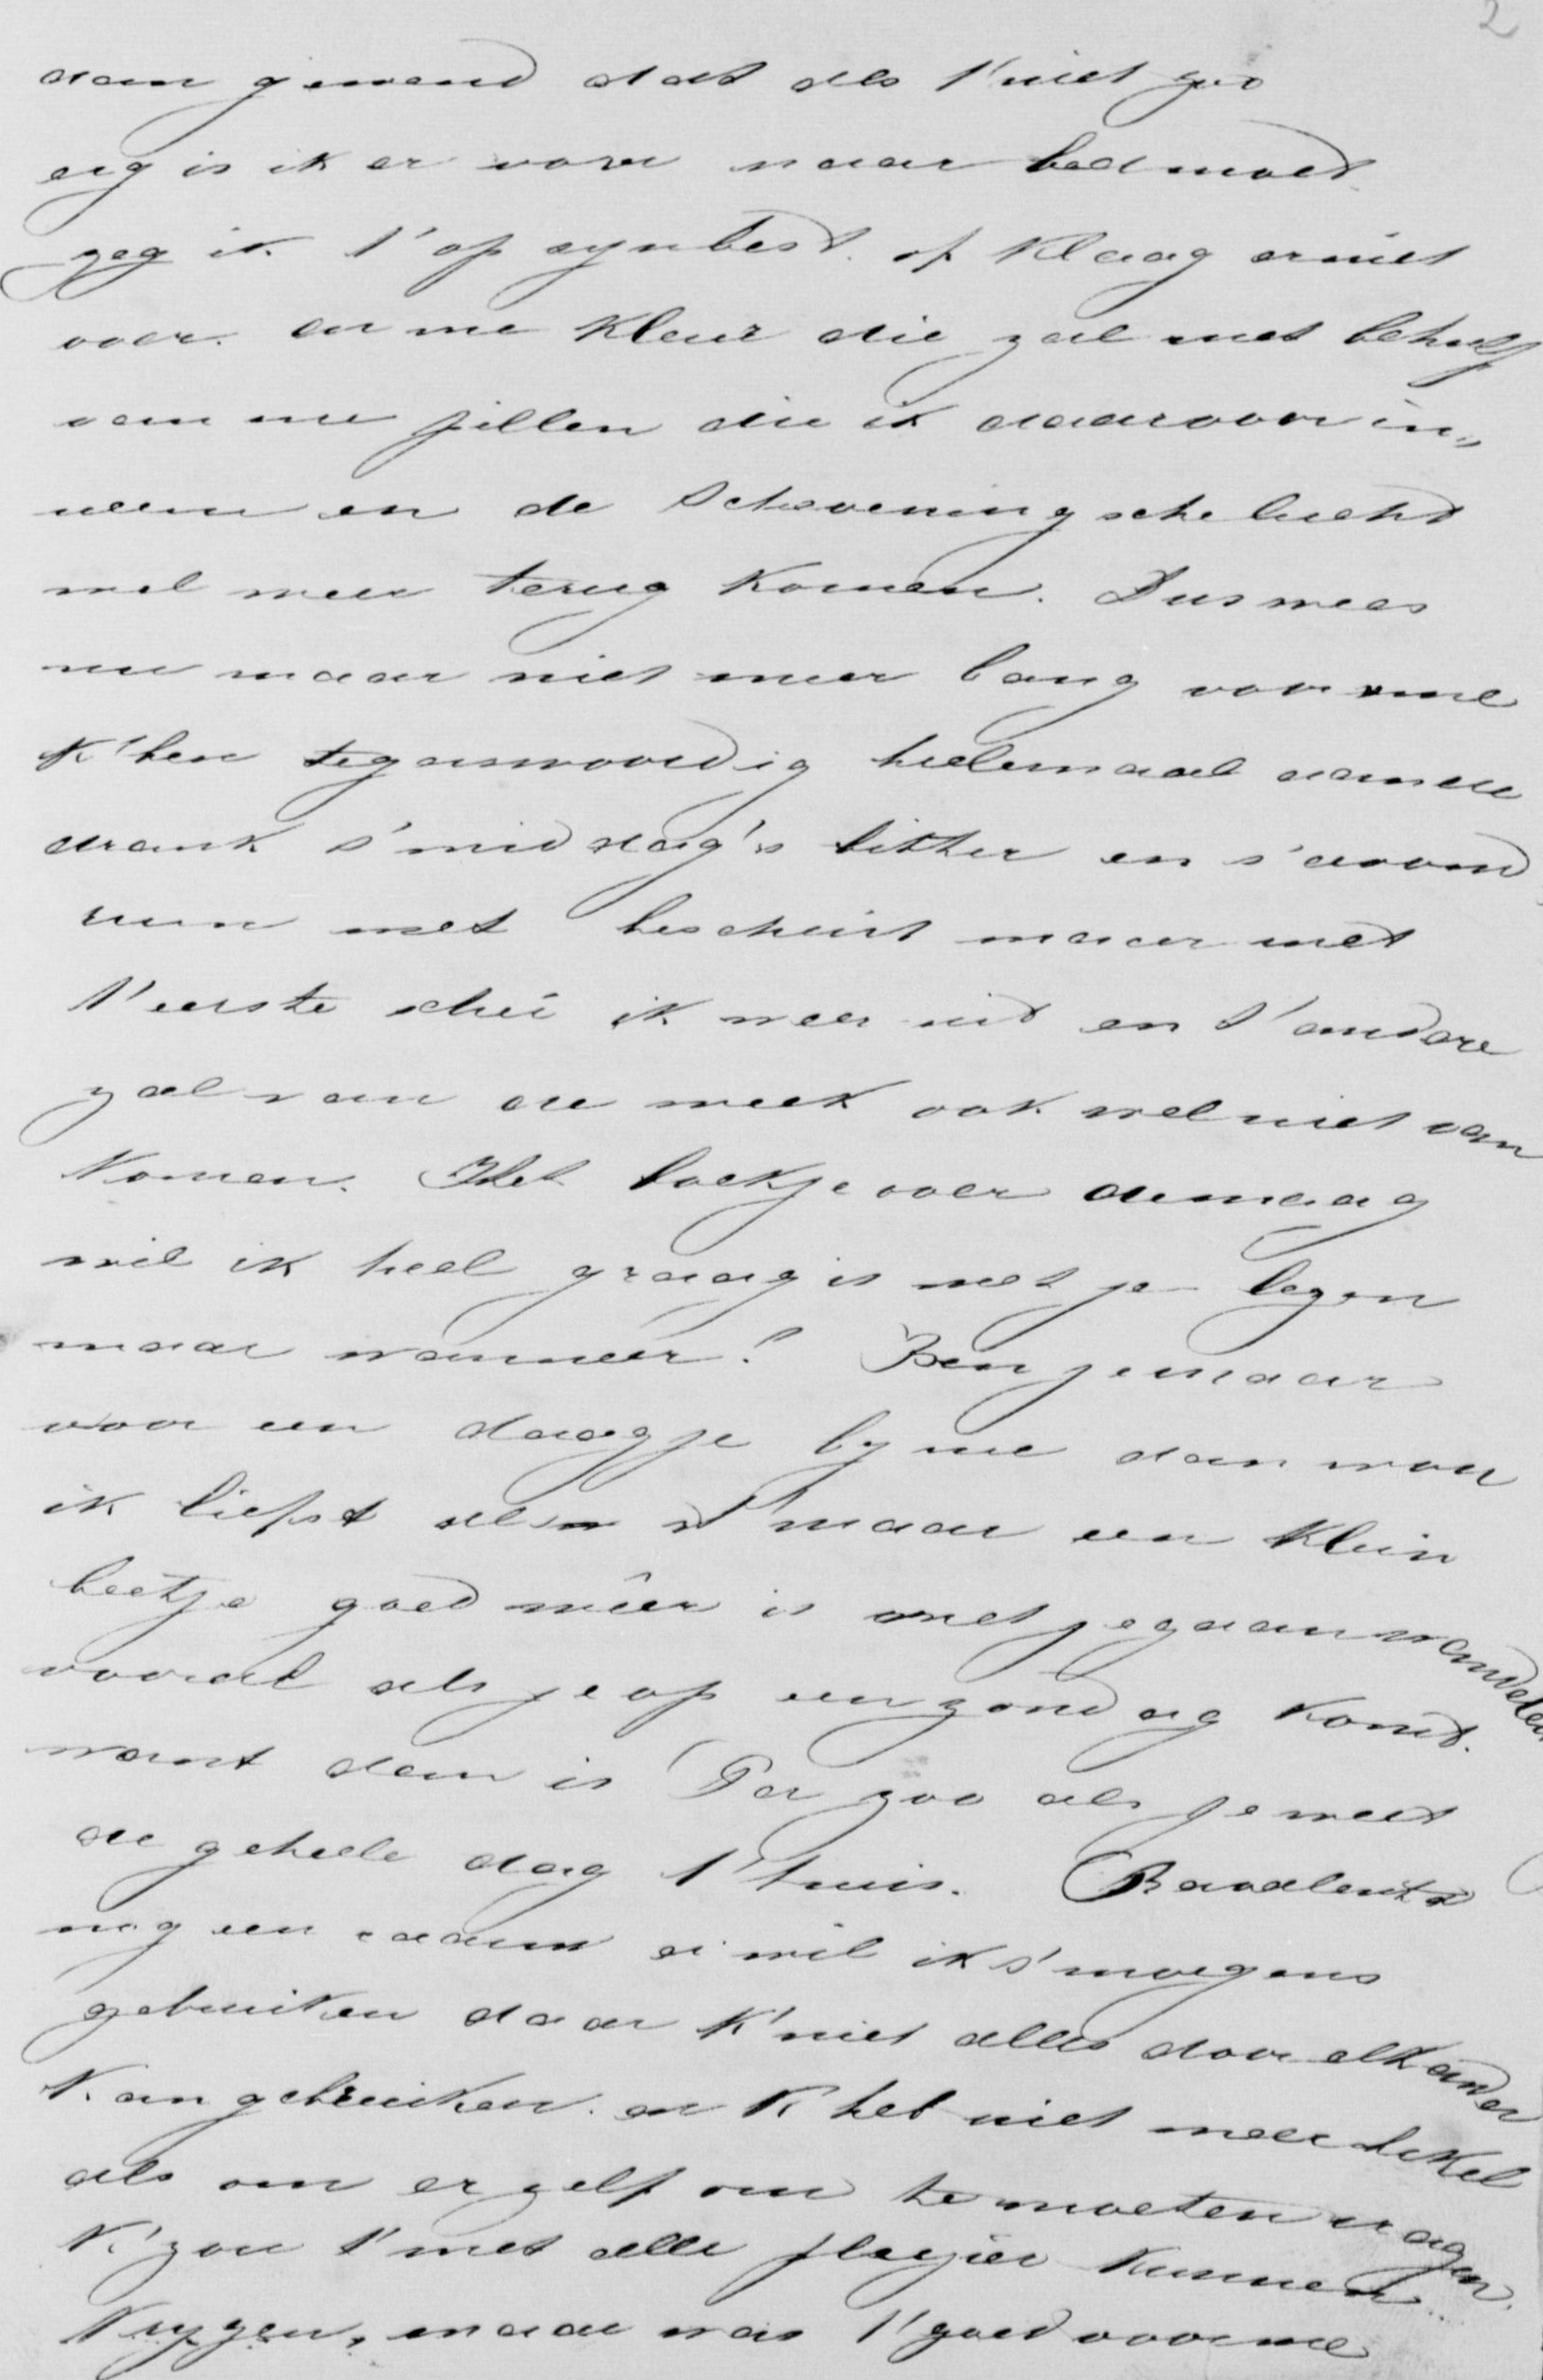 2
aan gewend dat als t'niet zoo
erg is ik er voor naar bed moet
zeg ik t'op zyn best of klaag er niet
over. en me kleur die zal met behulp
van me pillen die ik daarvoor in„
neem en de Scheveningsche lucht
wel weer terug komen. Dus wees
nu maar niet meer bang voor me
K'ben tegenswoordig heelemaal aan de
drank s'middag's bitter en s'avond
rum met beschuit maar met
t'eerste schei ik weer uit en t'andere
zal van de week ook wel niet van
komen. Het boekje over de maag
wil ik heel graag is met je lezen
maar wanneer? Ben je maar
voor een daagje by me dan wou
ik liefst als t'maar een klein
beetje goed wêer is met je gaan wandelen
vooral als je op een zondag komt.
want dan is Pa zoo als je weet
de geheele dag t'huis.
nog een rauw ei wil ik s'morgens
gebruiken daar k'niet alles door elkander
kan gebruiken. en k heb niet meer hekel
als om er zelf om te moeten vragen.
K'zou t'met alle plezier kunnen
krygen, maar was t'goed voor me